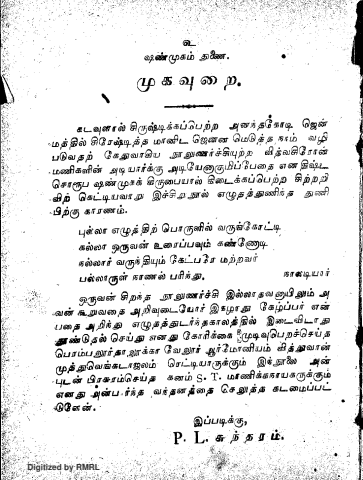 உ
ஷண்முகம் துணை.
முகவுரை.
கடவுளால் சிருஷ்டிக்கப்பெற்ற அனந்தகோடி ஜென்
மத்தில் சிரேஷ்டித்த மானிட ஜெனன மெடுத்த நாம் வழி
படுவதற் கேதுவாகிய நூலுணர்ச்சியுற்ற வித்வசிரோன்
மணிகளின் அடியார்க்கு அடியேனாயிப்பதை என திஷ்ட
சொரூப ஷண்முகக் கிருபையால் கிடைக்கப்பெற்ற சிற்றறி
விற் கெட்டியவாறு இச்சிறுநூல் எழுதத்துணிந்த துணி
பிற்கு காரணம்.
புல்லா எழுத்திற் பொருளில் வறுங்கோட்டி
கல்லா ஒருவன் உரைப்பவும் கண்ணோடி
நல்லார் வருந்தியும் கேட்பரே மற்றவர்
பல்லாருள் நாணல் பரிந்து. நாலடியார்
ஒருவன் சிறந்த நூலுணர்ச்சி இல்லாதவனாயினும் அ
வன் கூறுவதை அறிவுடையோர் இகழாது கேழ்ப்பர் என்
பதை அறிந்து எழுதத்துடர்ந்தகாலத்தில் இடைவிடாது
தூண்டுதல் செய்து எனது கோரிக்கை முடிவுபெறச்செய்த
பொம்பலூர்தாலூக்கா வேலூர் ஆர்மோனியம் வித்துவான்
முத்துவெங்கடாஜலம் ரெட்டியாருக்கும் இந்நூலை அன்
புடன் பிரசுரம்செய்த கனம் S. T. மாணிக்கநாயகருக்கும்
எனது அன்பார்ந்த வந்தனத்தை செலுத்த கடமைப்பட்
டுளேன்.
இப்படிக்கு,
P. L. சுந்தரம்.
Digitized by RMRL